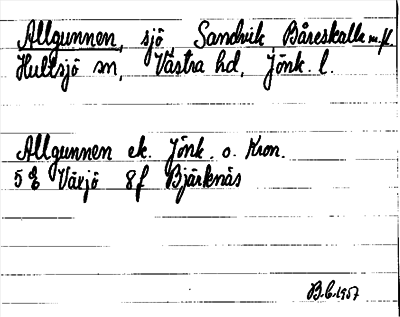 Allgunnen, sjö Sandvik, Båreskalla m.fl.
Hultsjö sn, Västra hd, Jönk. l.
Allgunnen ek. Jönk. o. Kron.
5 E Växjö 8 f Bjärknäs
B.C. 1957